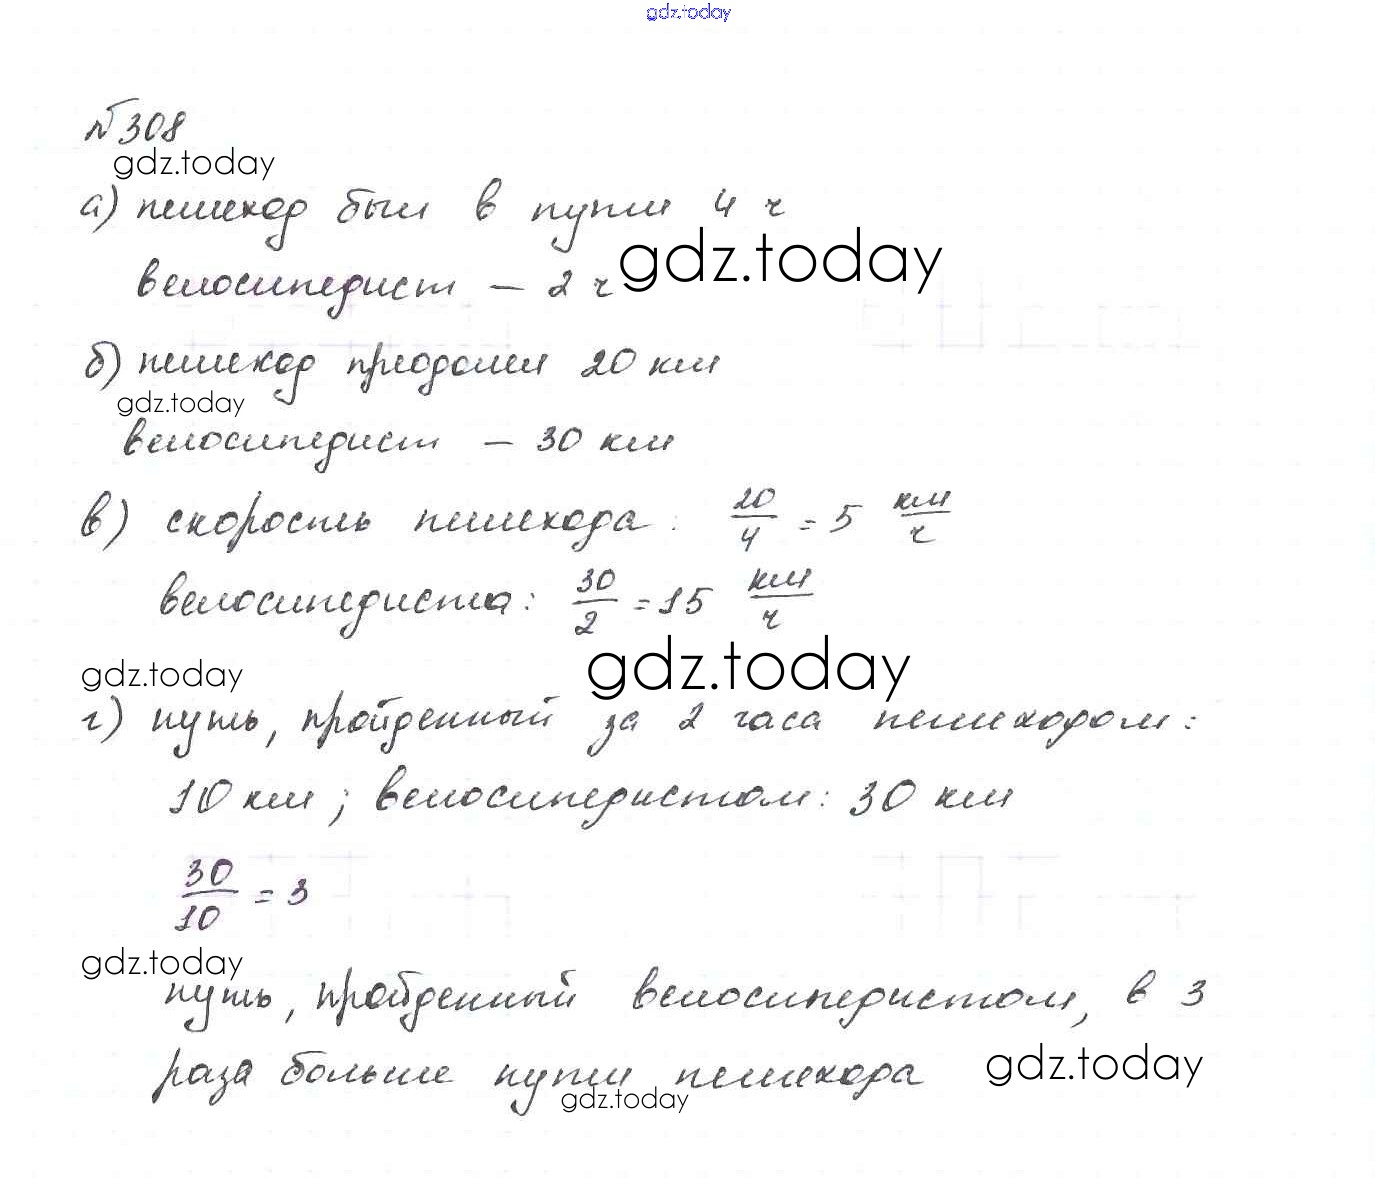 gdz.today
№308
gdz.today
а) пешеход был в пути 4 ч
gdz.today
велосипедист – 2 ч
б) пешеход преодолел 20 км
gdz.today
велосипедист – 30 км
в) скорость пешехода: 20/4 = 5 км/ч
велосипедиста: 30/2 = 15 км/ч
gdz.today
gdz.today
г) путь, пройденный за 2 часа пешеходом:
10 км; велосипедистом: 30 км
30/10 = 3
gdz.today
путь, пройденный велосипедистом, в 3
раза больше пути пешехода
gdz.today
gdz.today